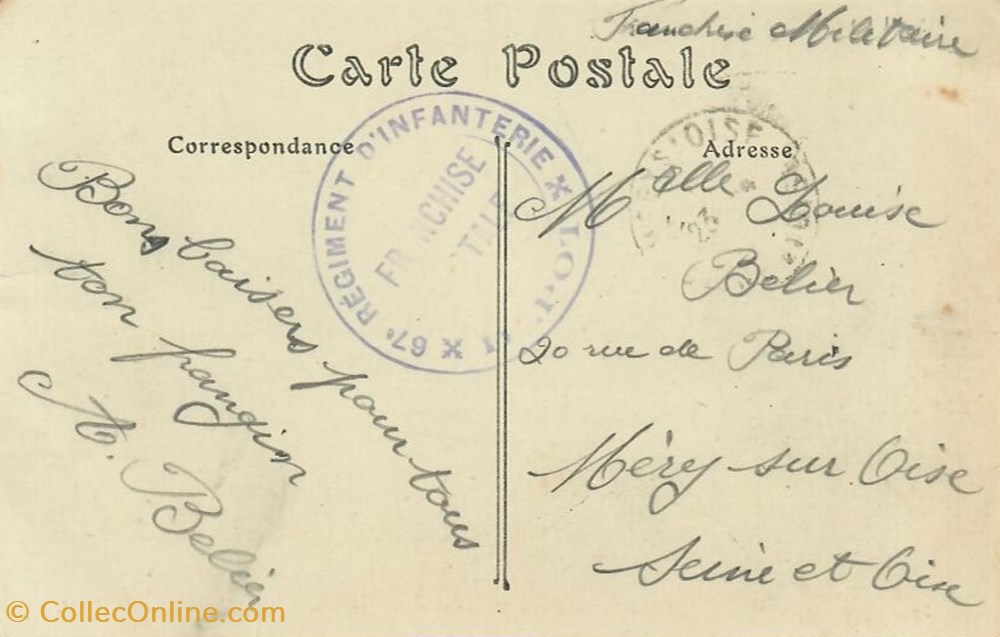 Franchise Militaire
Carte Postale
Correspondance
Adresse
67e RÉGIMENT D'INFANTERIE
FRANCHISE
S/OISE
23
Bons baisers pour tous
ton frangin
A. Belier
Melle Louise
Belier
20 rue de Paris
Méry sur Oise
Seine et Oise
© CollecOnline.com